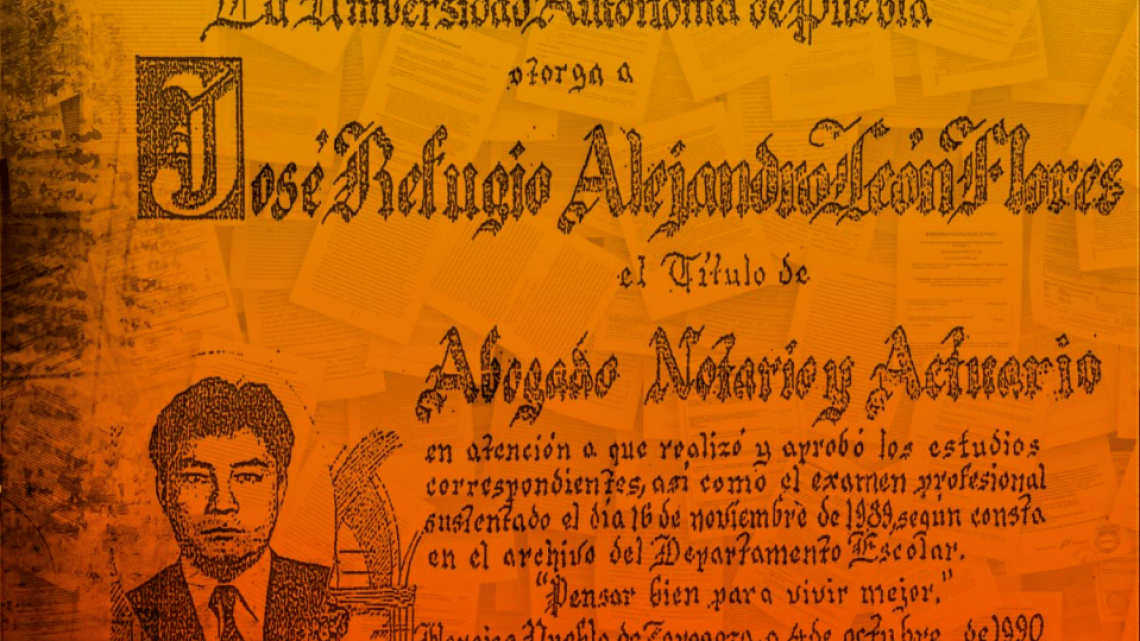 La Universidad Autónoma de Puebla
otorga a
José Refugio Alejandro León Flores
el Título de
Abogado Notario y Actuario
en atención a que realizó y aprobó los estudios
correspondientes, así como el examen profesional
sustentado el día 16 de noviembre de 1989, según consta
en el archivo del Departamento Escolar.
"Pensar bien para vivir mejor."
Heroica Puebla de Zaragoza, a 4 de octubre de 1990